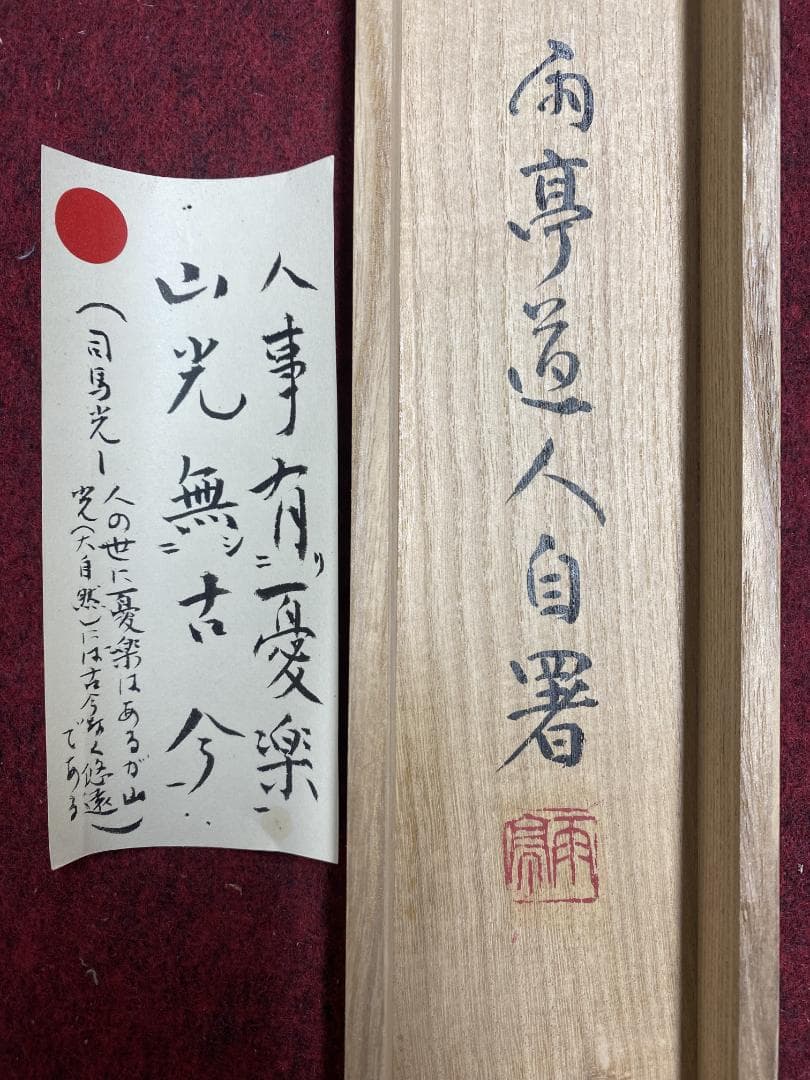 雨亭道人自署
雨亭
人事有リ二憂楽一
山光無シ二古今一
(司馬光ー人の世に憂楽はあるが山
光(大自然)には古今なく悠遠
である)